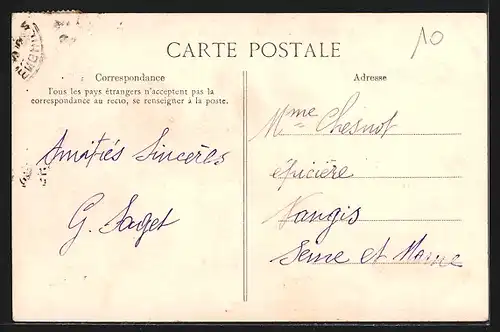 10
CARTE POSTALE
Correspondance
Tous les pays étrangers n'acceptent pas la
correspondance au recto, se renseigner à la poste.
Amitiés Sincères
G. Saget
Adresse
Mme Chesnot
épicière
Nangis
Seine et Marne